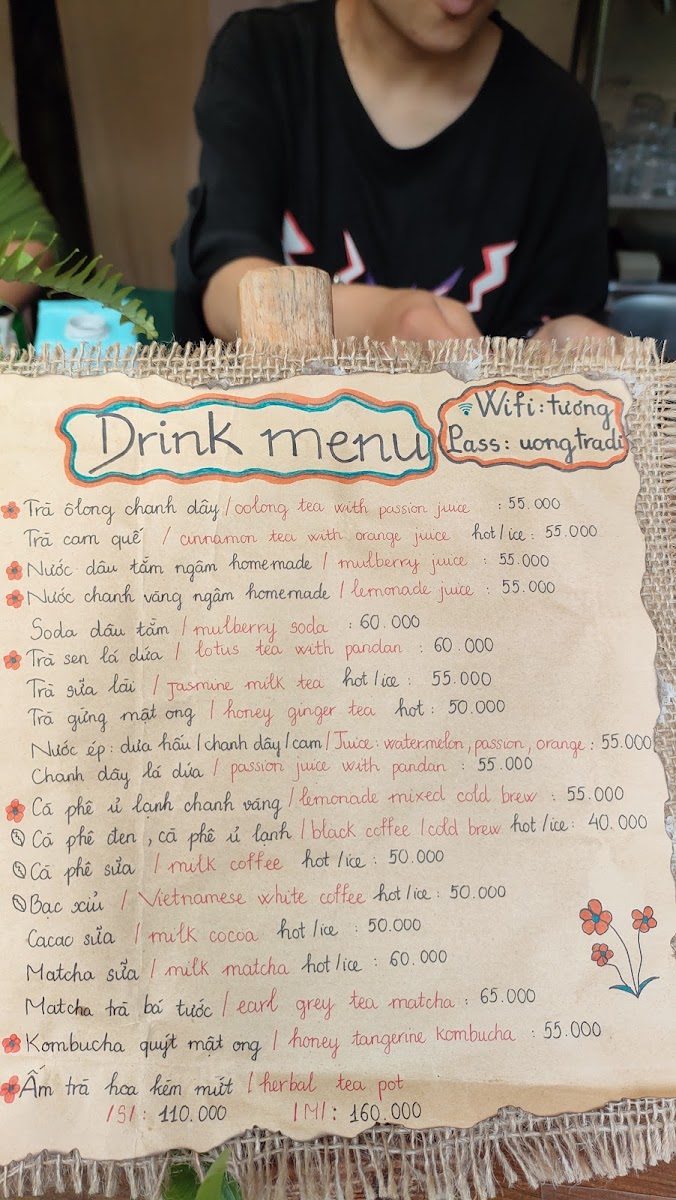 Drink menu
Wifi: tương
Pass: uongtradi
Trà ôlong chanh dây / oolong tea with passion juice : 55.000
Trà cam quế / cinnamon tea with orange juice hot/ice: 55.000
Nước dâu tằm ngâm homemade / mulberry juice : 55.000
Nước chanh vàng ngâm homemade / lemonade juice : 55.000
Soda dâu tằm / mulberry soda : 60.000
Trà sen lá dứa / lotus tea with pandan : 60.000
Trà sữa lài / Jasmine milk tea hot/ice : 55.000
Trà gừng mật ong / honey ginger tea hot : 50.000
Nước ép: dưa hấu / chanh dây / cam / Juice: watermelon, passion, orange : 55.000
Chanh dây lá dứa / passion juice with pandan : 55.000
Cà phê ủ lạnh chanh vàng / lemonade mixed cold brew : 55.000
Cà phê đen, cà phê ủ lạnh / black coffee / cold brew hot/ice: 40.000
Cà phê sữa / milk coffee hot/ice : 50.000
Bạc xỉu / Vietnamese white coffee hot/ice : 50.000
Cacao sữa / milk cocoa hot/ice : 50.000
Matcha sữa / milk matcha hot/ice : 60.000
Matcha trà bá tước / earl grey tea matcha : 65.000
Kombucha quýt mật ong / honey tangerine kombucha : 55.000
Ấm trà hoa kèm mứt / herbal tea pot
/S/ : 110.000 /M/ : 160.000